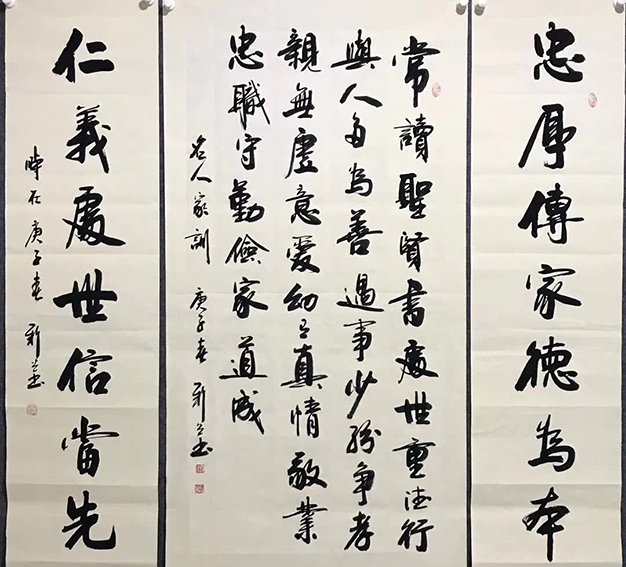 忠厚傳家德為本
常讀聖賢書處世重德行
與人多為善遇事少紛爭孝
親無虛意愛幼有真情敬業
忠職守勤儉家道成
名人家訓 庚子春 新书
仁義處世信當先
時在庚子春 新书